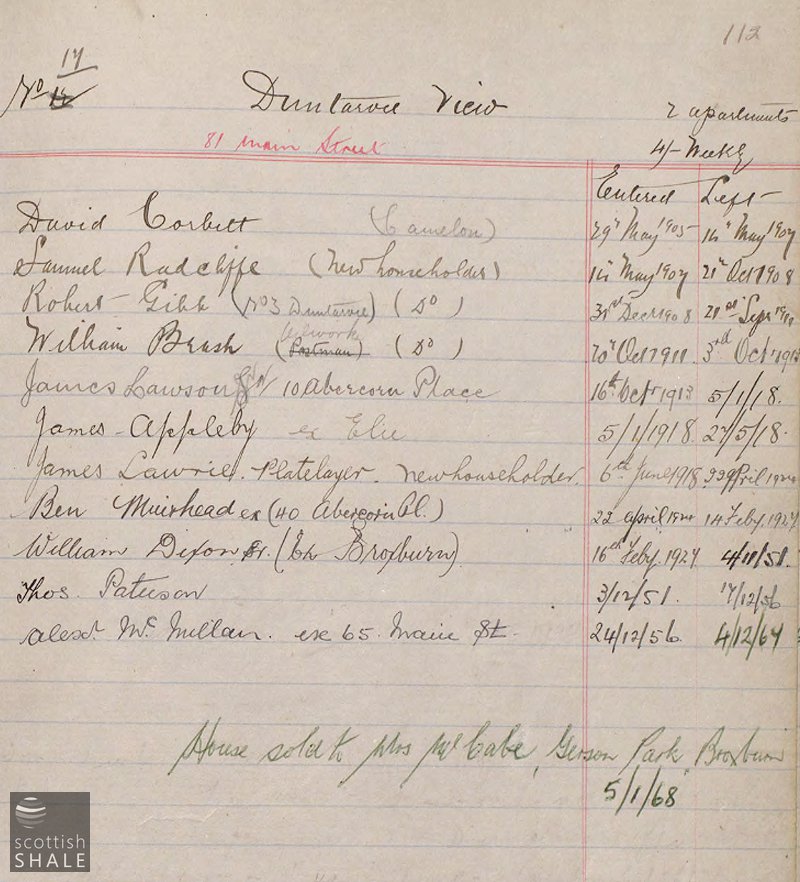 112
17
No 12 Duntarvie View
2 apartments
81 Main Street
4/- Weekly
Entered Left
David Corbett (Camelon) 29th May 1905 16th May 1907
Samuel Radcliffe (New householder) 16th May 1907 21st Oct 1908
Robert Gibb (No 3 Duntarvie) (Do) 31st Decr 1908 21st Sepr
Oilwork
William Brash (Postman) (Do) 20th Oct 1911 3rd Oct 1913
James Lawson 10 Abercorn Place 16th Octr 1913 5/1/18.
James Appleby ex Elie 5/1/1918. 27/5/18.
James Lawrie. Platelayer. New householder. 6th June 1918 22 April
Ben Muirhead ex (40 Abercorn Pl.) 22 April 14 Feby. 1927
William Dixon Sr. (Ex Broxburn) 16th Feby. 1927 4/11/51.
Thos. Paterson 3/12/51. 17/12/56
Alexr. McMillan. ex 65. Main St. 24/12/56. 4/12/67
House sold to Mrs McCabe, Park Broxburn
5/1/68
scottish
SHALE